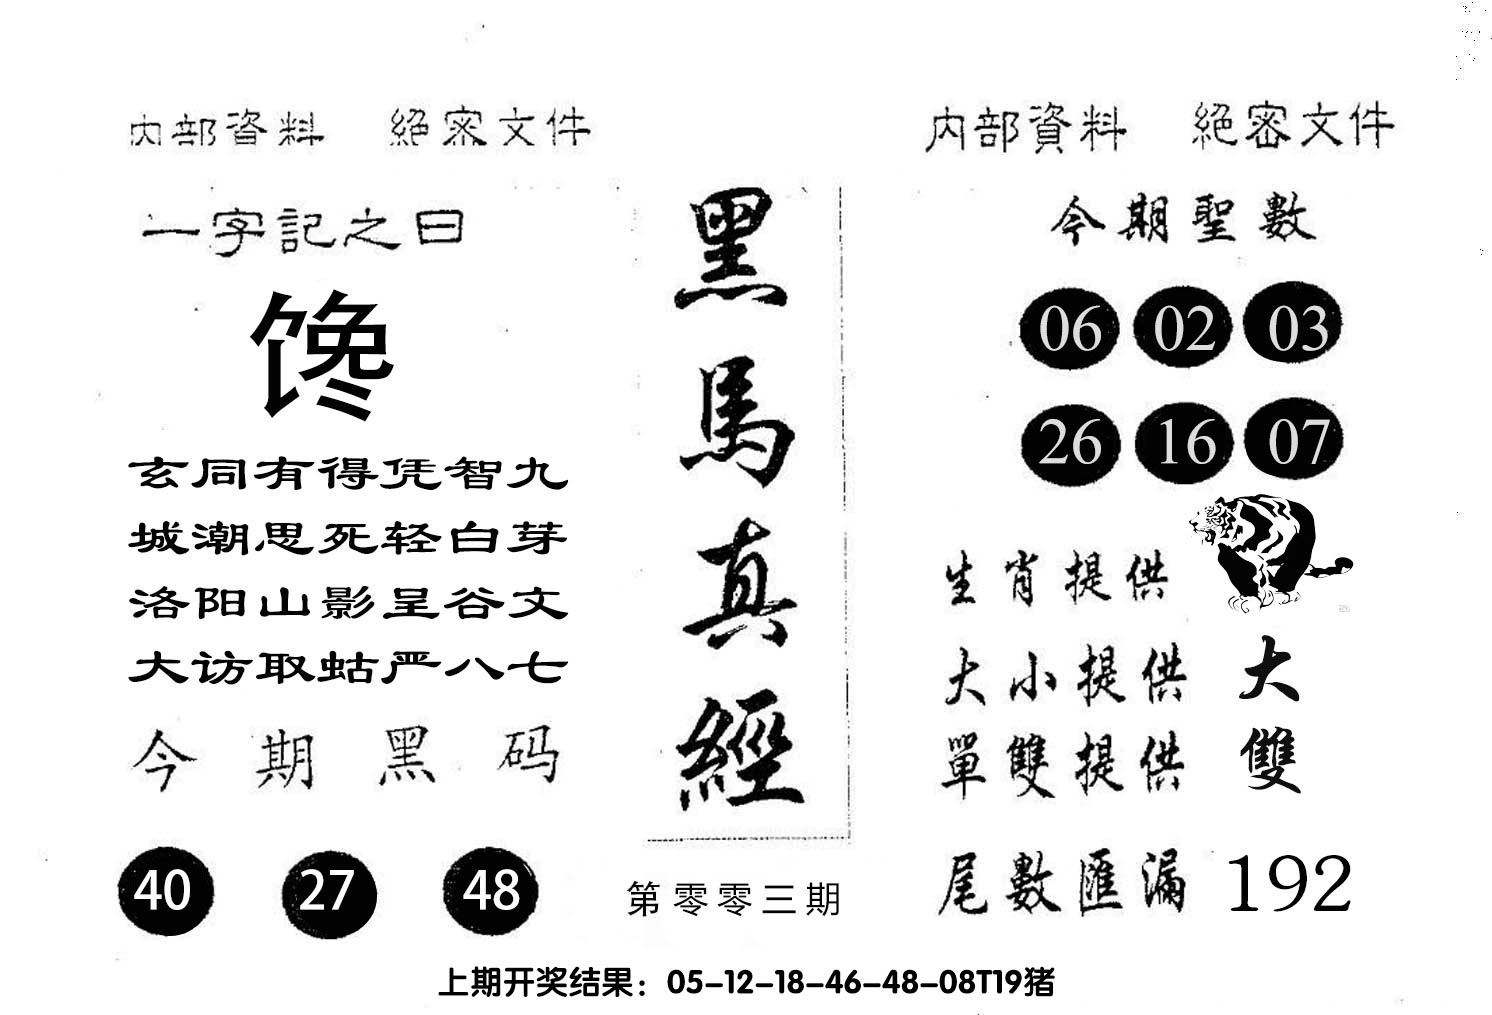 内部資料 絕密文件
一字記之曰
馋
玄同有得凭智九
城潮思死轻白芽
洛阳山影呈谷文
大访取蛄严八七
今期黑码
40 27 48
黑馬真經
第零零三期
内部資料 絕密文件
今期聖數
06 02 03
26 16 07
生肖提供
大小提供 大
單雙提供 雙
尾數匯漏 192
上期开奖结果：05-12-18-46-48-08T19猪